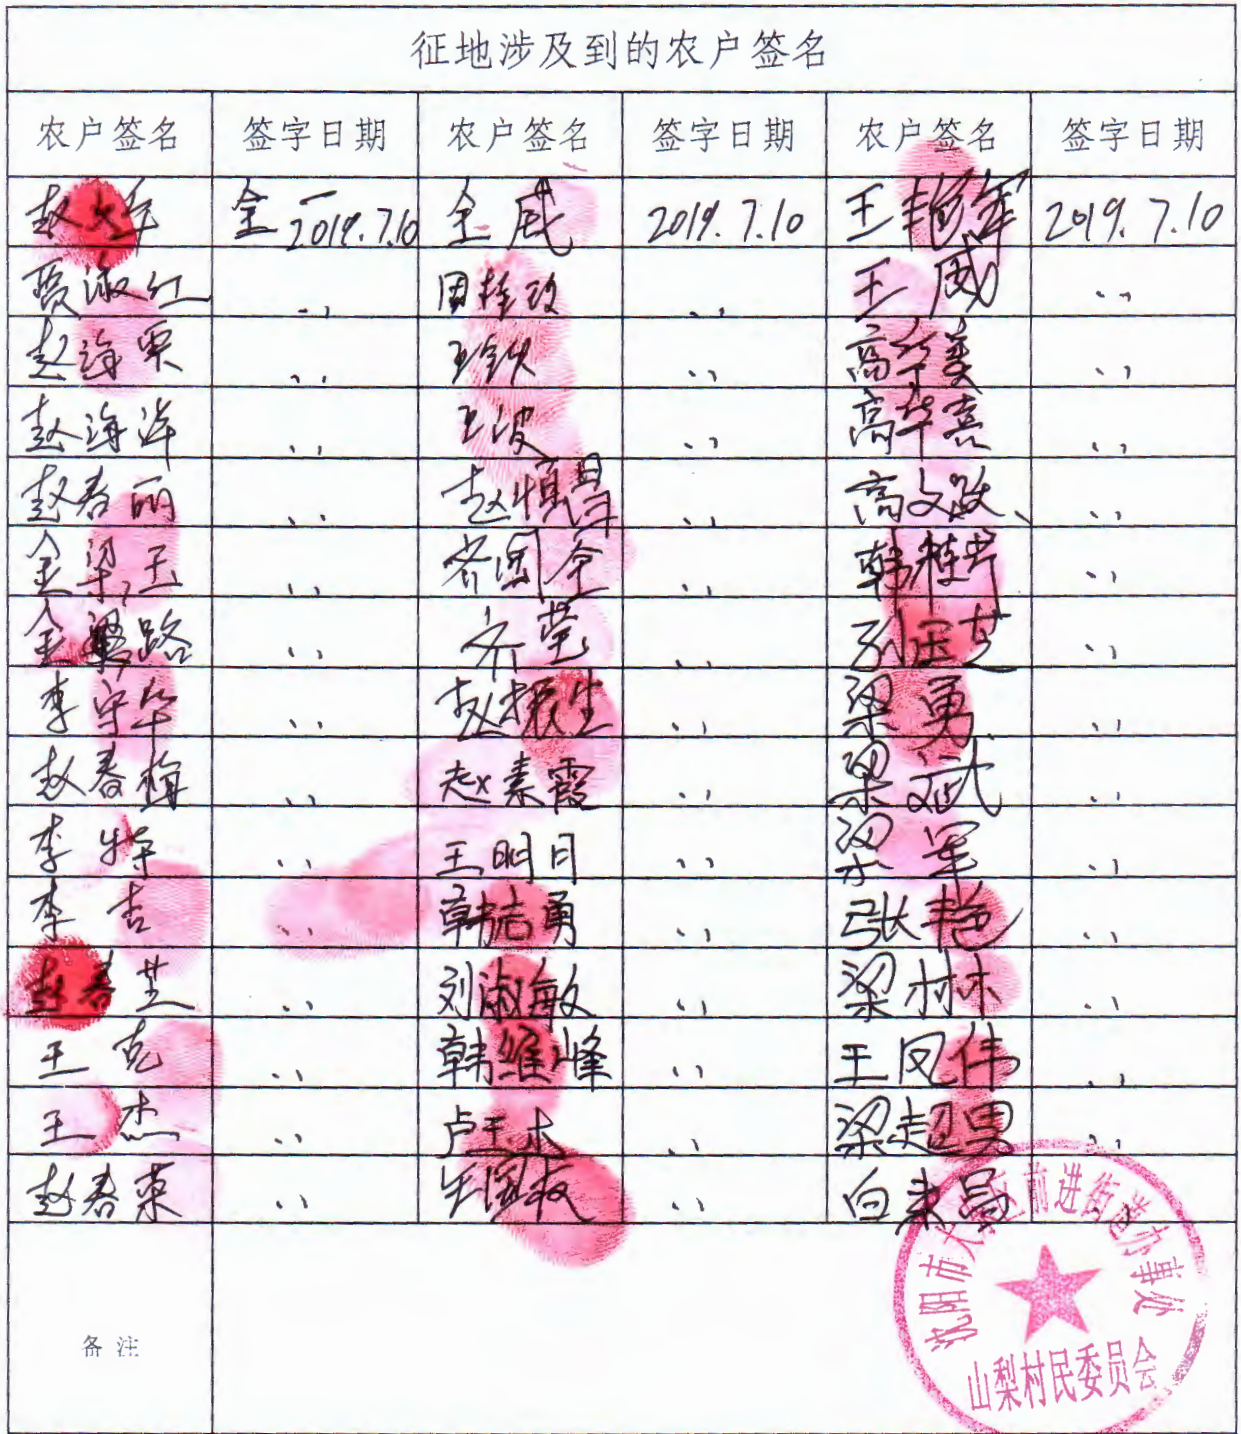 征地涉及到的农户签名
农户签名 签字日期 农户签名 签字日期 农户签名 签字日期
赵 2019.7.10 全威 2019.7.10 王艳军 2019.7.10
贾淑红 〃 周桂玫 〃 王威 〃
赵海栗 〃 王铁 〃 高华美 〃
赵海洋 〃 王波 〃 高华嘉 〃
赵春丽 〃 赵慎昌 〃 高文政 〃
金梁玉 〃 齐国全 〃 韩桂芹 〃
金梁路 〃 齐莹 〃 孙宝芝 〃
李守华 〃 赵振生 〃 梁勇 〃
赵春梅 〃 赵素霞 〃 梁斌 〃
李特 〃 王明月 〃 梁军 〃
李杏 〃 韩洁勇 〃 张艳 〃
赵春芝 〃 刘淑敏 〃 梁材林 〃
王克 〃 韩维峰 〃 王凤伟 〃
王杰 〃 卢玉杰 〃 梁超男 〃
赵春荣 〃 〃 白来局
备注
沈阳市大东区前进街道办事处
山梨村民委员会